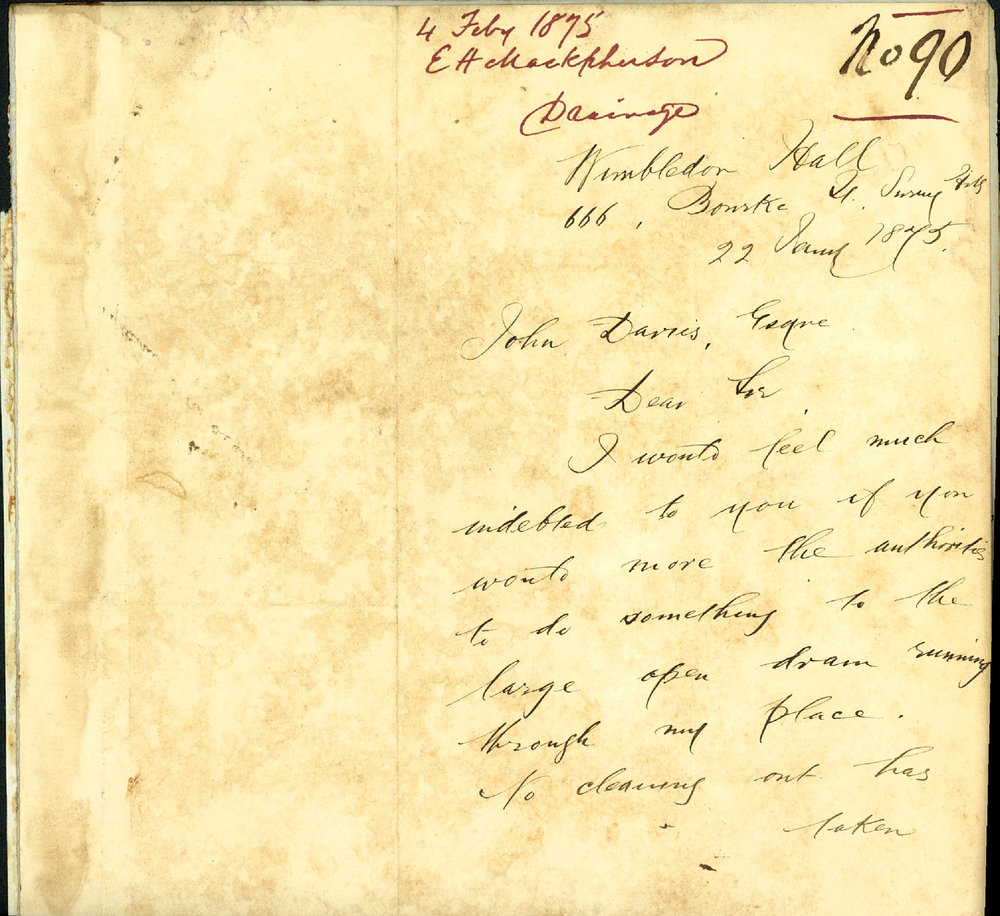 4 Feby 1875
E H Mackpherson
Drainage
No 90
Wimbledon Hall
666, Bourke St. Surrey Hills
22 Jany 1875.
John Davies, Esqre
Dear Sir,
I would feel much
indebted to you if you
would move the authorities
to do something to the
large open drain running
through my place.
No cleaning out has
taken